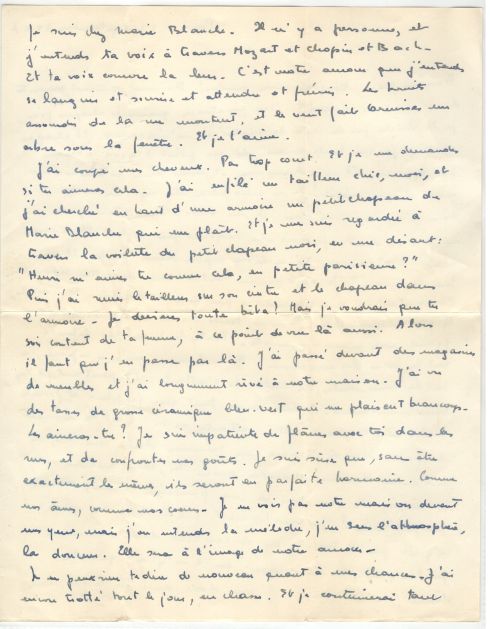 Je suis chez Marie Blanche. Il n'y a personne, et
j'entends ta voix à travers Mozart et Chopin et Bach.
Et ta voix couvre la leur. C'est notre amour que j'entends
se languir et sourire et attendre et frémir. Les bruits
assourdis de la rue montent, et le vent fait bruisser un
arbre sous la fenêtre. Et je t'aime.
J'ai coupé mes cheveux. Pas trop court. Et je me demandes
si tu aimeras cela. J'ai enfilé un tailleur chic, noir, et
j'ai cherché en haut d'une armoire un petit chapeau de
Marie Blanche qui me plaît. Et je me suis regardée à
travers la voilette du petit chapeau noir, en me disant:
"Henri m'aimes tu comme cela, en petite parisienne?"
Puis j'ai remis le tailleur sur son cintre et le chapeau dans
l'armoire - Je deviens toute bêta! Mais je voudrais que tu
sois content de ta femme, à ce point de vue là aussi. Alors
il faut que j'en passe par là. J'ai passé devant des magasins
de meubles et j'ai longuement rêvé à notre maison. J'ai vu
des tasses de grosse céramique bleu-vert qui me plaisent beaucoup.
Les aimeras-tu? Je suis impatiente de flâner avec toi dans les
rues, et de confronter nos goûts. Je suis sûre que, sans être
exactement les mêmes, ils seront en parfaite harmonie. Comme
nos âmes, comme nos cœurs. Je ne vois pas notre maison devant
mes yeux, mais j'en entends la mélodie, j'en sens l'atmosphère,
la douceur. Elle sera à l'image de notre amour -
Je ne peux rien te dire de nouveau quant à mes chances. J'ai
encore trotté tout le jour, en chasse. Et je continuerai tant